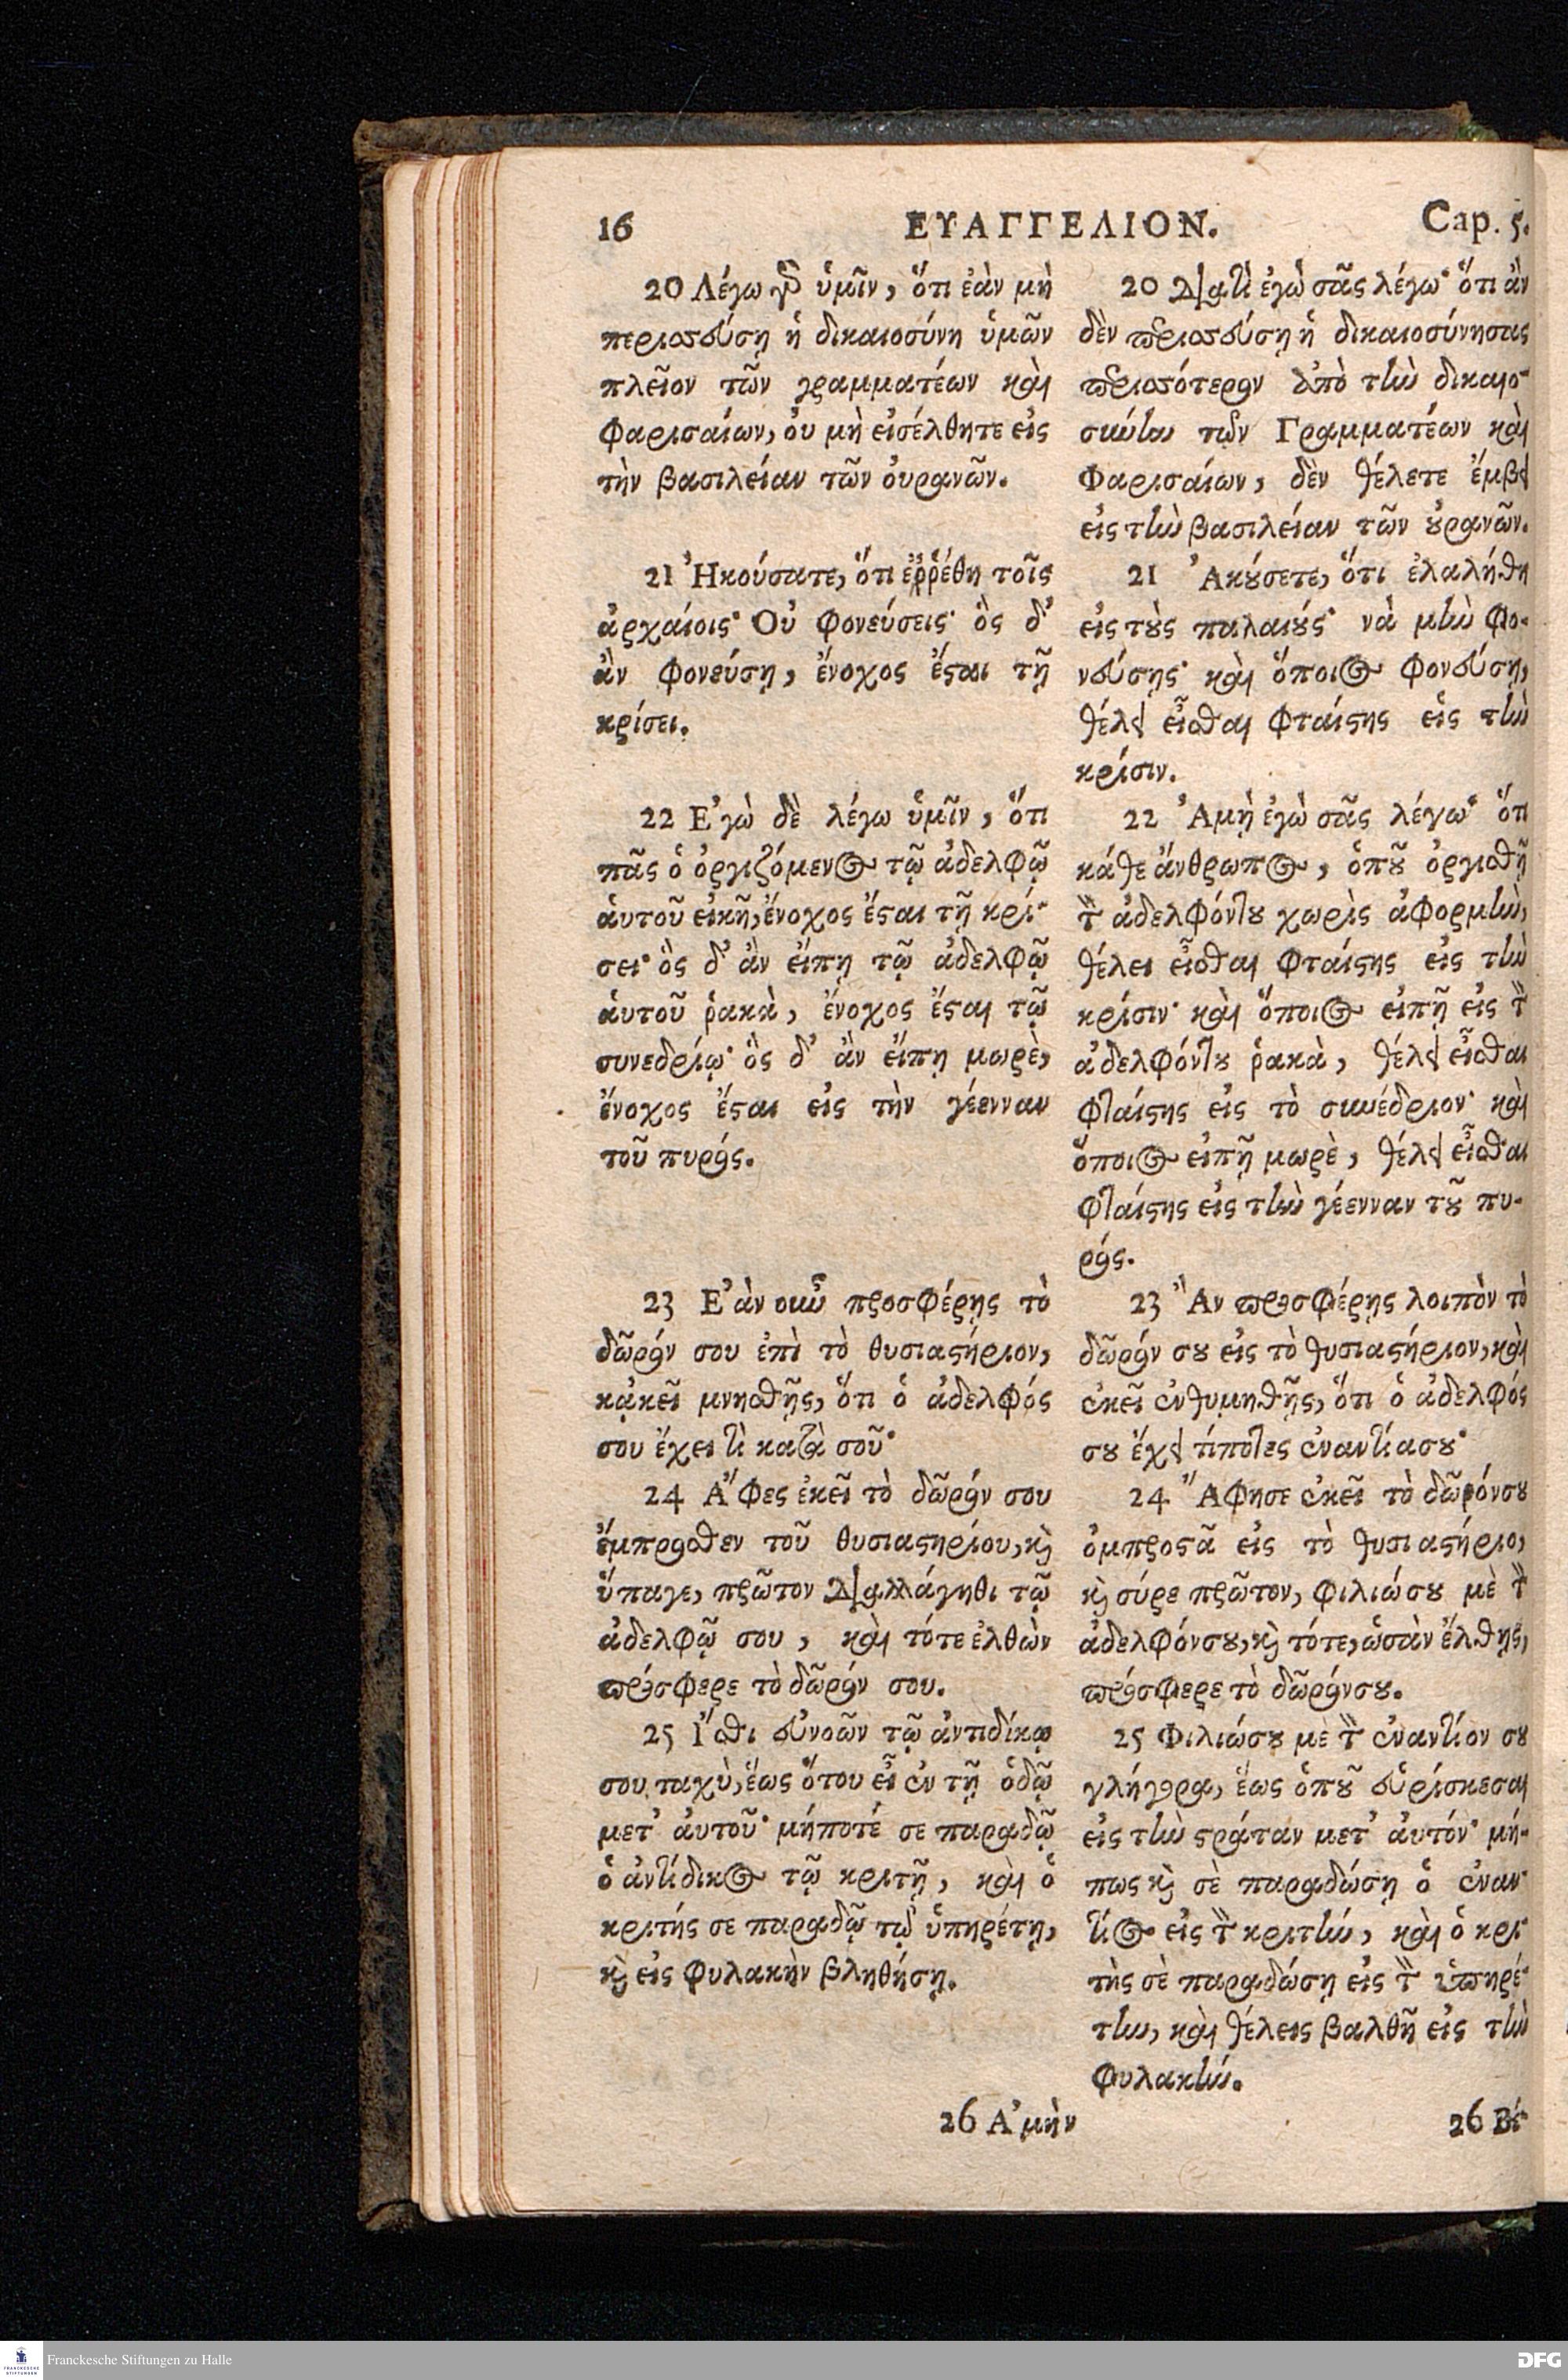 16 ΕΥΑΓΓΕΛΙΟΝ. Cap. 5.
20 Λέγω γὰρ ὑμῖν, ὅτι ἐὰν μὴ
περισσεύσῃ ἡ δικαιοσύνη ὑμῶν
πλεῖον τῶν γραμματέων καὶ
Φαρισαίων, ὀυ μὴ εἰσέλθητε εἰς
τὴν βασιλείαν τῶν ὀυρανῶν.
21 Ἠκούσατε, ὅτι ἐῤῥέθη τοῖς
ἀρχαίοις· Οὐ φονεύσεις· ὃς δ'
ἂν φονεύσῃ, ἔνοχος ἔσται τῇ
κρίσει.
22 Ἐγὼ δὲ λέγω ὑμῖν, ὅτι
πᾶς ὁ ὀργιζόμενος τῷ ἀδελφῷ
ἁυτοῦ εἰκῆ, ἔνοχος ἔσται τῇ κρί-
σει· ὃς δ' ἂν ἔιπῃ τῷ ἀδελφῷ
ἁυτοῦ ῥακὰ, ἔνοχος ἔσται τῷ
συνεδρίῳ· ὃς δ' ἂν ἔιπῃ μωρὲ,
ἔνοχος ἔσται εἰς τὴν γέενναν
τοῦ πυρός.
23 Ἐὰν οὖν προσφέρῃς τὸ
δῶρόν σου ἐπὶ τὸ θυσιαστήριον,
κᾀκεῖ μνησθῇς, ὅτι ὁ ἀδελφός
σου ἔχει τὶ κατὰ σοῦ·
24 Ἄφες ἐκεῖ τὸ δῶρόν σου
ἔμπροσθεν τοῦ θυσιαστηρίου, καὶ
ὕπαγε, πρῶτον διαλλάγηθι τῷ
ἀδελφῷ σου, καὶ τότε ἐλθὼν
πρόσφερε τὸ δῶρόν σου.
25 Ἴσθι εὐνοῶν τῷ ἀντιδίκῳ
σου ταχὺ, ἕως ὅτου εἶ ἐν τῇ ὁδῷ
μετ' ἀυτοῦ· μήποτέ σε παραδῷ
ὁ ἀντίδικος τῷ κριτῇ, καὶ ὁ
κριτής σε παραδῷ τῷ ὑπηρέτῃ,
καὶ εἰς φυλακὴν βληθήσῃ.
26 Ἀμὴν
20 Διατὶ ἐγὼ σᾶς λέγω· ὅτι ἂν
δὲν περισσεύσῃ ἡ δικαιοσύνησας
περισσότερον ἀπὸ τὴν δικαιο-
σύνην τῶν Γραμματέων καὶ
Φαρισαίων, δὲν θέλετε ἔμβει
εἰς τὴν βασιλείαν τῶν ουρανῶν.
21 Ἀκούσετε, ὅτι ἐλαλήθη
εἰς τοὺς παλαιούς· νὰ μὴν φο-
νεύσῃς· καὶ ὅποιος φονεύσῃ,
θέλει εἶσθαι φταίστης εἰς τὴν
κρίσιν.
22 Ἀμὴ ἐγὼ σᾶς λέγω· ὅτι
κάθε ἄνθρωπος, ὁποῦ ὀργισθῇ
τὸν ἀδελφόντου χωρὶς ἀφορμὴν,
θέλει εἶσθαι φταίστης εἰς τὴν
κρίσιν· καὶ ὅποιος εἰπῇ εἰς τὸν
ἀδελφόντου ῥακὰ, θέλει εἶσθαι
φταίστης εἰς τὸ συνέδριον· καὶ
ὅποιος εἰπῇ μωρὲ, θέλει εἶσθαι
φταίστης εἰς τὴν γέενναν τοῦ πυ-
ρός.
23 Ἂν προσφέρῃς λοιπὸν τὸ
δῶρόν σου εἰς τὸ θυσιαστήριον, καὶ
ἐκεῖ ἐνθυμηθῇς, ὅτι ὁ ἀδελφός
σου ἔχει τίποτες ἐναντίασου·
24 Ἄφησε ἐκεῖ τὸ δῶρόνσου
ὀμπροστᾶ εἰς τὸ θυσιαστήριο,
καὶ σύρε πρῶτον, φιλιώσου μὲ τὸν
ἀδελφόνσου, καὶ τότε, ὡσὰν ἔλθῃς,
πρόσφερε τὸ δῶρόνσου.
25 Φιλιώσου μὲ τὸν ἐναντίον σου
γλήγορα, ἕως ὁποῦ εὑρίσκεσαι
εἰς τὴν στράταν μετ' ἀυτόν· μή-
πως καὶ σὲ παραδώσῃ ὁ ἐναν-
τίος εἰς τὸν κριτὴν, καὶ ὁ κρι-
τὴς σὲ παραδώσῃ εἰς τὸν ὑπηρέ-
την, καὶ θέλεις βαλθῆ εἰς τὴν
φυλακήν.
26 Βέ-
Franckesche Stiftungen zu Halle
DFG